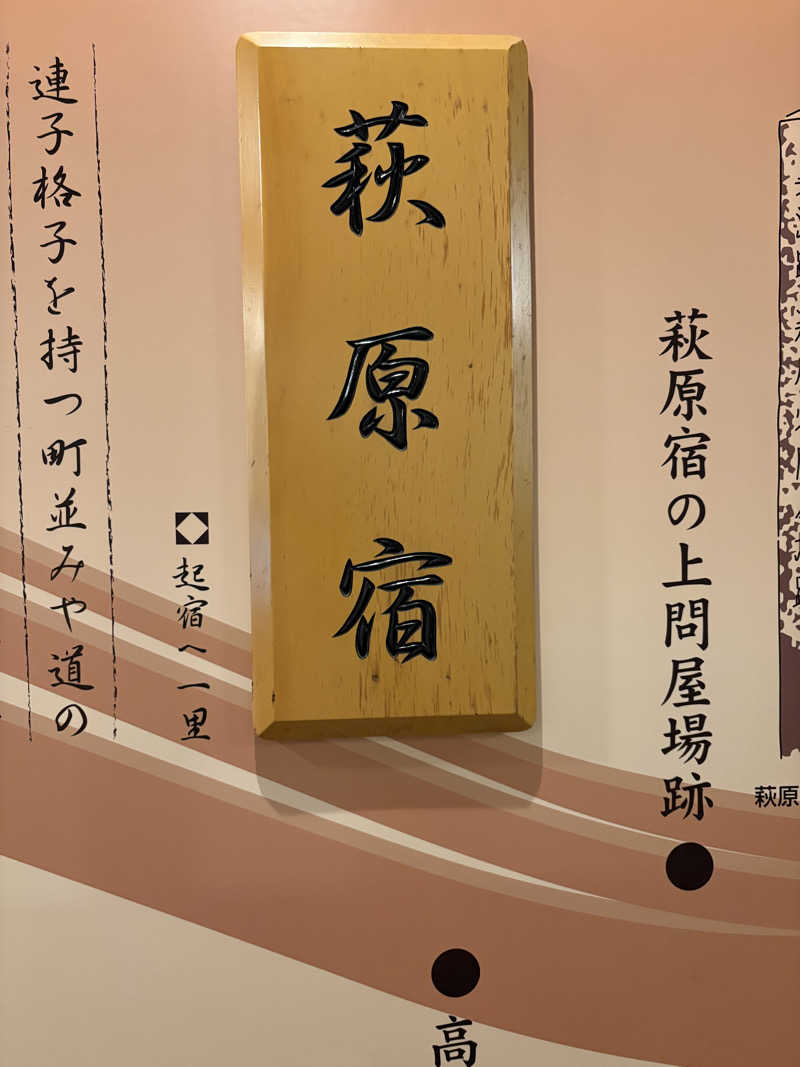 萩原宿の上問屋場跡
萩原宿
高
起宿へ一里
連子格子を持つ町並みや道の
萩原